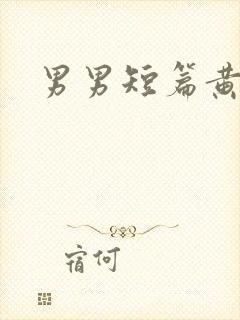 男男短篇黄
宿何